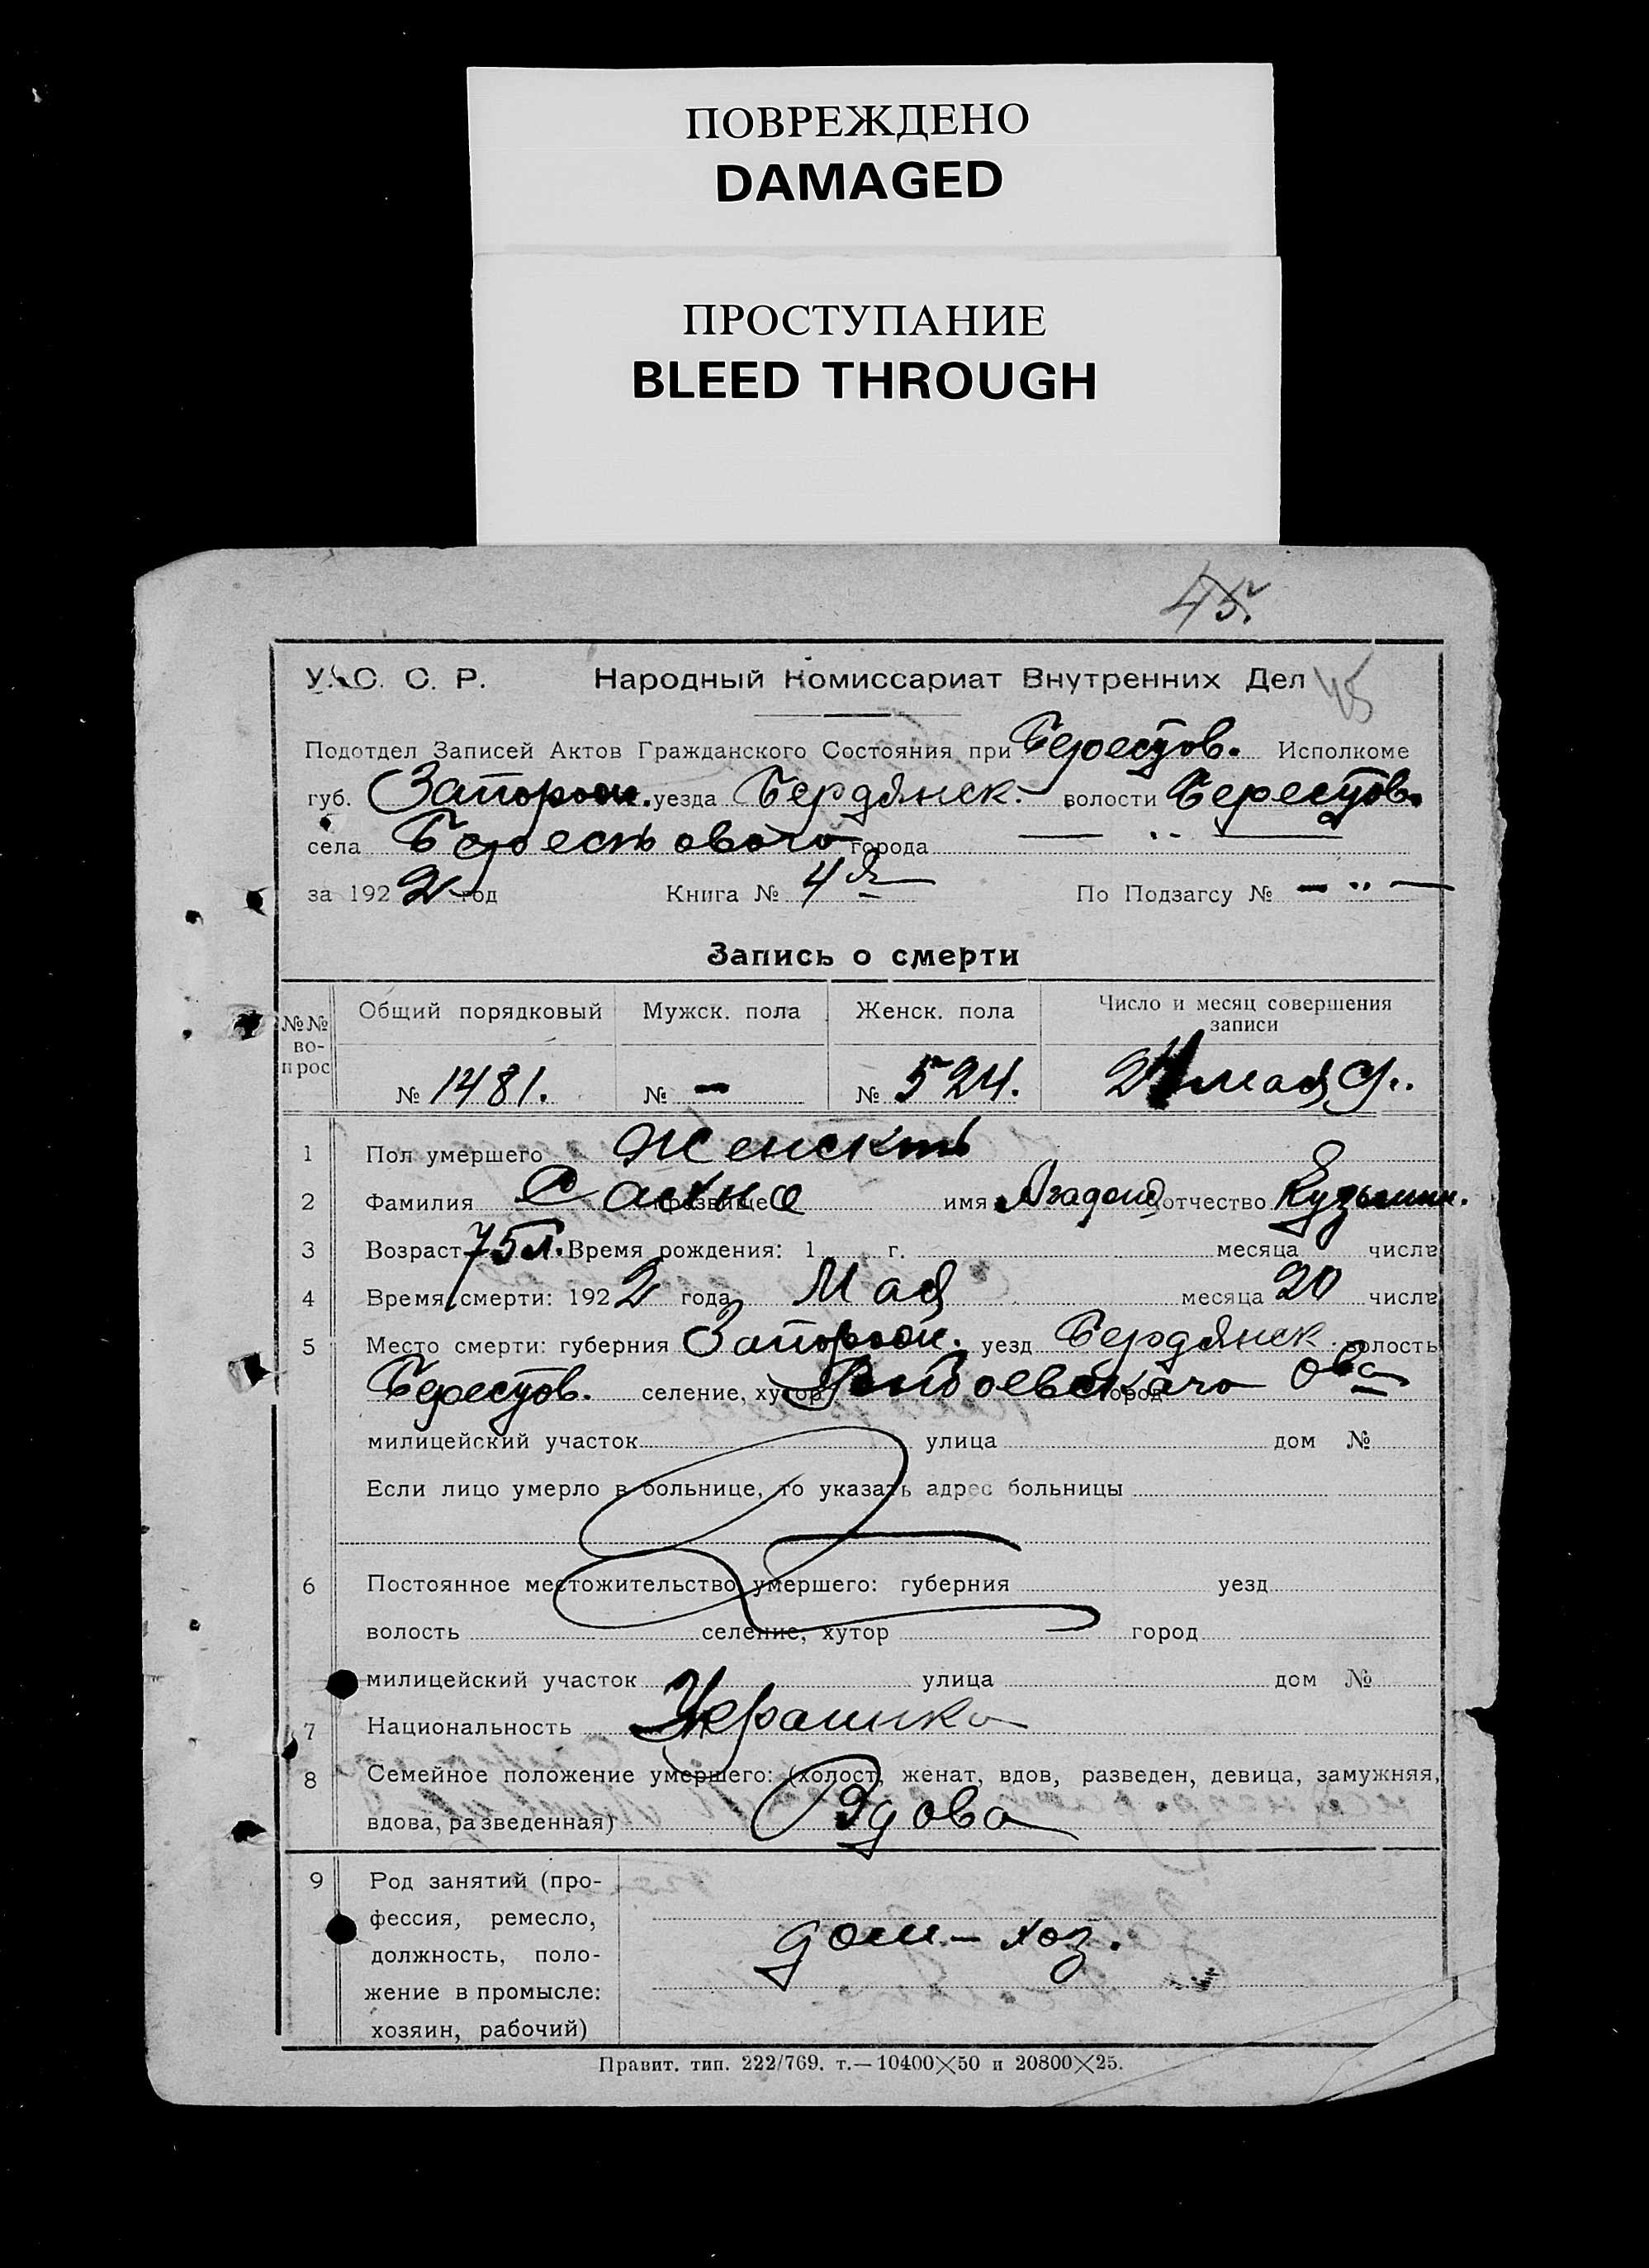 ПОВРЕЖДЕНО
DAMAGED
ПРОСТУПАНИЕ
BLEED THROUGH
45
У. С. С. Р. Народный Комиссариат Внутренних Дел 45
Подотдел Записей Актов Гражданского Состояния при Берестов. Исполкоме
губ. Запорож. уезда Бердянск. волости Берестов.
села Берестоваго города — „ —
за 1922 год Книга № 4я По Подзагсу № — „ —
Запись о смерти
№№ во-прос Общий порядковый Мужск. пола Женск. пола Число и месяц совершения записи
№ 1481. № — № 524. мая
1 Пол умершего Женскій
2 Фамилия Сахно прозвище имя отчество Кузьмин.
3 Возраст 75 л. Время рождения: 1 г. месяца числа
4 Время смерти: 1922 года Мая месяца 20 числа
5 Место смерти: губерния Запорож. уезд Бердянск. волость
Берестов. селение, хутор город
милицейский участок улица дом №
Если лицо умерло в больнице, то указать адрес больницы
6 Постоянное местожительство умершего: губерния уезд
волость селение, хутор город
милицейский участок улица дом №
7 Национальность Украинка
8 Семейное положение умершего: (холост, женат, вдов, разведен, девица, замужняя,
вдова, разведенная) Вдова
9 Род занятий (про-
фессия, ремесло,
должность, поло- дом-хоз.
жение в промысле:
хозяин, рабочий)
Правит. тип. 222/769. т.—10400×50 и 20800×25.